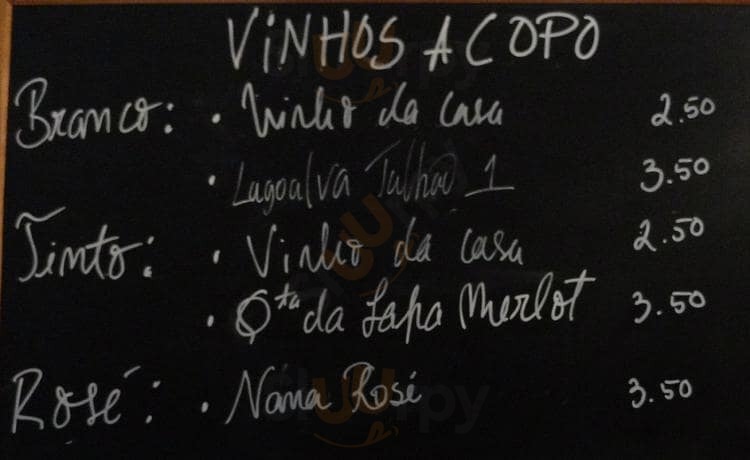 VINHOS A COPO
Branco: • Vinho da casa 2.50
• Lagoalva Talhão 1 3.50
Tinto: • Vinho da casa 2.50
• Qta da Lapa Merlot 3.50
Rosé: • Nana Rosé 3.50